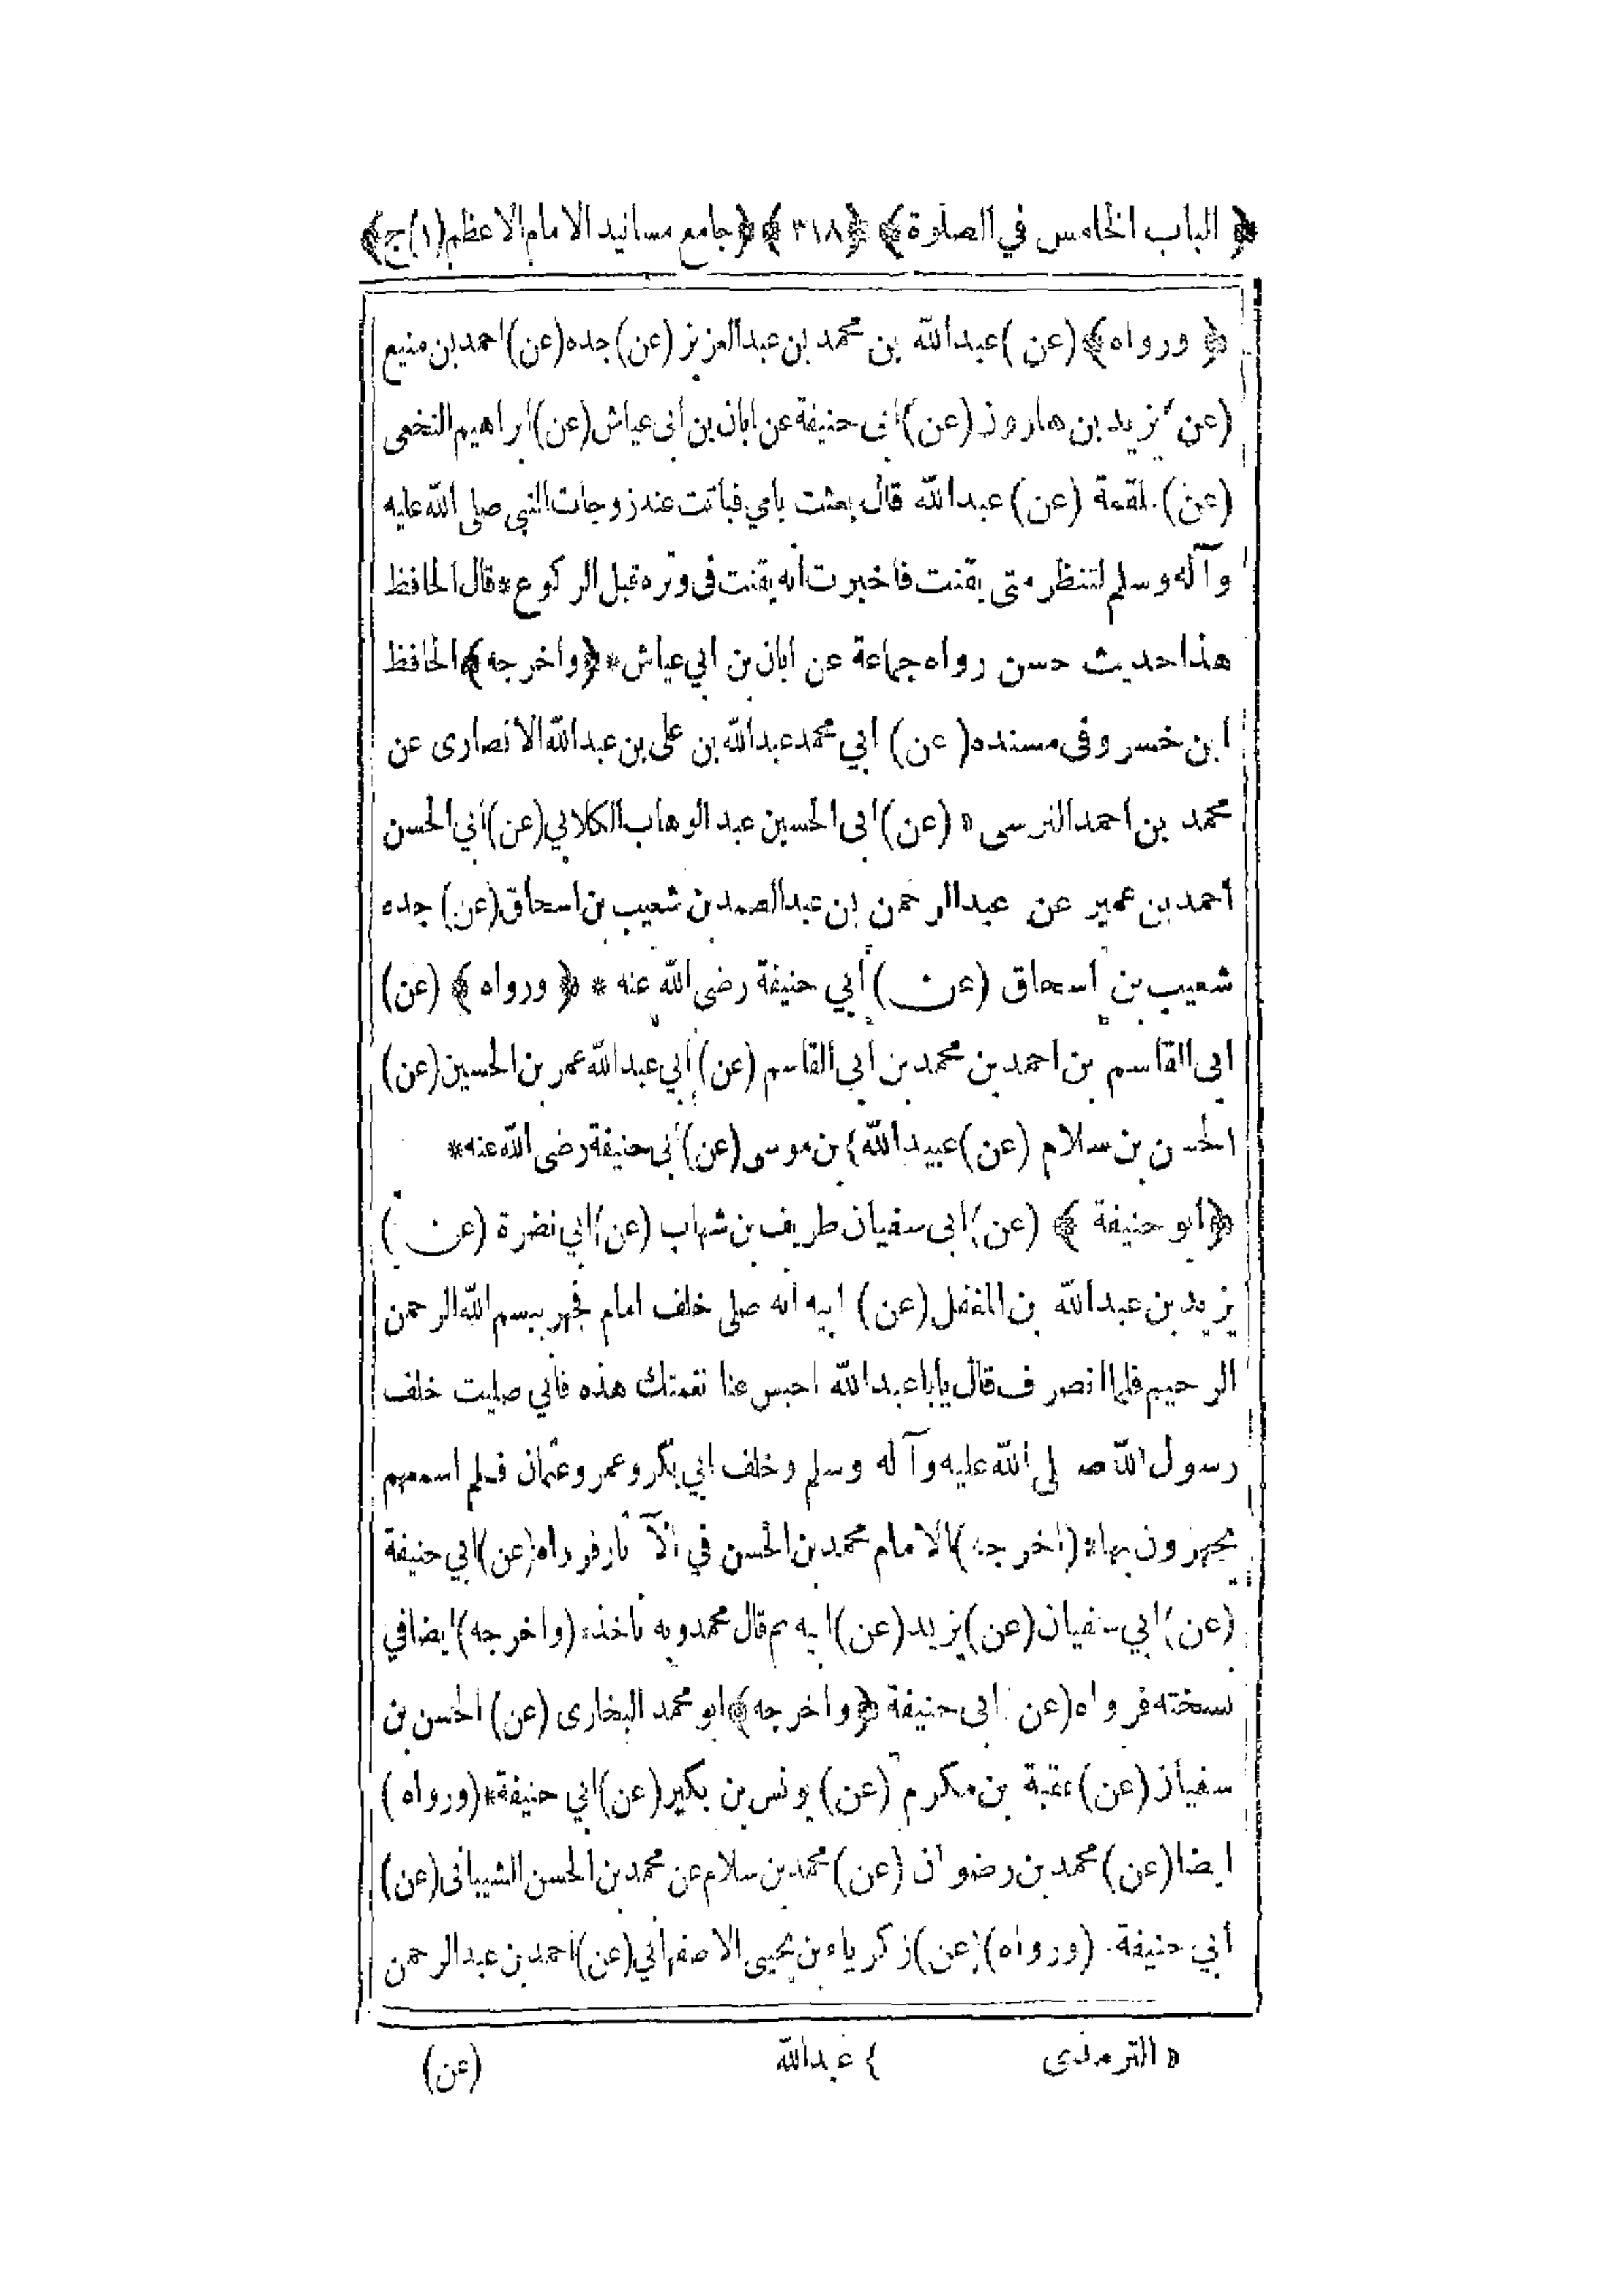 ﴿ الباب الخامس في الصلوة ﴾ ﴿ ٣١٨ ﴾ ﴿ جامع مسانيد الامام الاعظم (١) ج ﴾
﴿ ورواه ﴾ (عن) عبدالله بن محمد بن عبدالعزيز (عن) جده (عن) احمد بن منيع
(عن) يزيد بن هارون (عن) ابى حنيفة عن ابان بن ابى عياش (عن) ابراهيم النخعى
(عن) علقمة (عن) عبدالله قال بعثت بامي فباتت عند زوجات النبى صلى الله عليه
وآله وسلم لتنظر متى يقنت فاخبرت انه يقنت فى وتره قبل الركوع * قال الحافظ
هذا حديث حسن رواه جماعة عن ابان بن ابي عياش * ﴿ واخرجه ﴾ الحافظ
ابن خسر وفى مسنده (عن) ابي محمد عبدالله بن على بن عبدالله الانصارى عن
محمد بن احمد النرسى * (عن) ابى الحسين عبد الوهاب الكلابي (عن) ابي الحسن
احمد بن عمير عن عبدالرحمن بن عبدالصمد بن شعيب بن اسحاق (عن) جده
شعيب بن اسحاق (عن) أبي حنيفة رضى الله عنه * ﴿ ورواه ﴾ (عن)
ابى القاسم بن احمد بن محمد بن ابي القاسم (عن) أبي عبدالله عمر بن الحسين (عن)
الحسن بن سلام (عن) عبيدالله } بن موسى (عن) ابى حنيفة رضى الله عنه *
﴿ ابو حنيفة ﴾ (عن) ابى سفيان طريف بن شهاب (عن) ابي نضرة (عن)
يزيد بن عبدالله بن المغفل (عن) ابيه انه صلى خلف امام فجهر ببسم الله الرحمن
الرحيم فلما انصرف قال يابا عبدالله احبس عنا نغمتك هذه فاني صليت خلف
رسول الله صلى الله عليه وآله وسلم وخلف ابي بكر وعمر وعثمان فلم اسمعهم
يجهرون بها * (اخرجه) الامام محمد بن الحسن في الآثار فرواه (عن) ابي حنيفة
(عن) ابي سفيان (عن) يزيد (عن) ابيه ثم قال محمد وبه ناخذ * (واخرجه) ايضا في
نسخته فرواه (عن) ابى حنيفة ﴿ واخرجه ﴾ ابو محمد البخارى (عن) الحسن بن
سفيان (عن) عقبة بن مكرم (عن) يونس بن بكير (عن) ابي حنيفة * (ورواه)
ايضا (عن) محمد بن رضوان (عن) محمد بن سلام عن محمد بن الحسن الشيبانى (عن)
أبي حنيفة * (ورواه) (عن) زكرياء بن يحيى الاصفهاني (عن) احمد بن عبدالرحمن
* الترمذى } عبدالله (عن)